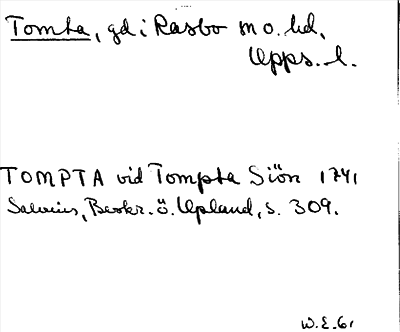 Tomta, gd i Rasbo sn o. hd,
Upps. l.
TOMPTA vid Tompta Siön 1741
Salvius, Beskr. ö. Upland, s. 309.
W.E. 61